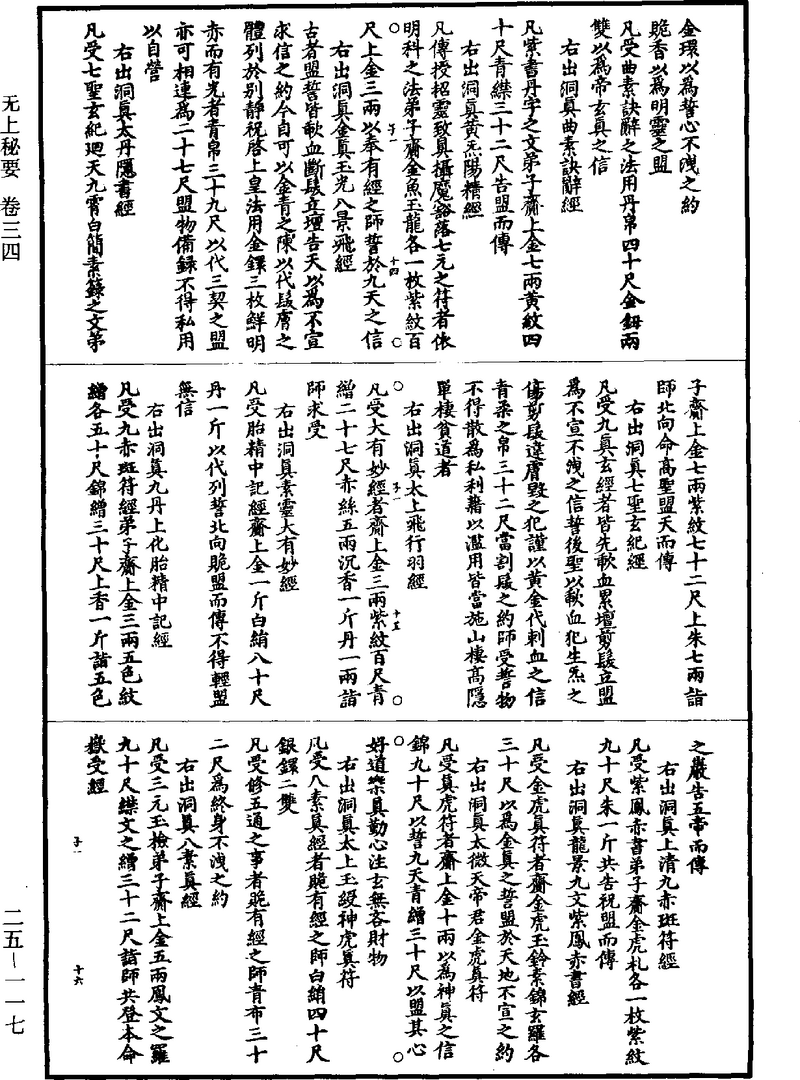 无上秘要 卷三四
金環以為誓心不洩之約
跪香以為明靈之盟
凡受曲素訣辭之法用丹帛四十尺金鈕兩
雙以為帝玄真之信
右出洞真曲素訣辭經
凡紫書丹字之文弟子齎上金七兩黃紋四
十尺青縹三十二尺告盟而傳
右出洞真黃炁陽精經
凡傳授招靈致真攝魔豁落七元之符者依
明科之法弟子齎金魚玉龍各一枚紫紋百
尺上金三兩以奉有經之師誓於九天之信
右出洞真金真玉光八景飛經
古者盟誓皆歃血斷髮立壇告天以為不宣
求信之約今自可以金青之陳以代髮膚之
體列於別靜祝啓上皇法用金鐶三枚鮮明
赤而有光者青帛三十九尺以代三契之盟
亦可相連為二十七尺盟物備録不得私用
以自營
右出洞真太丹隱書經
凡受七聖玄紀迴天九霄白簡素籙之文弟
子齎上金七兩紫紋七十二尺上朱七兩詣
師北向命高聖盟天而傳
右出洞真七聖玄紀經
凡受九真玄經者皆先歃血累壇剪髮立盟
為不宣不洩之信誓後聖以歃血犯生炁之
傷剪髮違膚毀之犯謹以黃金代刺血之信
青柔之帛三十二尺當割髮之約師受誓物
不得散為私利藉以濫用皆當施山棲高隱
單棲貧道者
右出洞真太上飛行羽經
凡受大有妙經者齎上金三兩紫紋百尺青
繒二十七尺赤絲五兩沉香一斤丹一兩詣
師求受
右出洞真素靈大有妙經
凡受胎精中記經齎上金一斤白絹八十尺
丹一斤以代列誓北向跪盟而傳不得輕盟
無信
右出洞真九丹上化胎精中記經
凡受九赤斑符經弟子齎上金三兩五色紋
繒各五十尺錦繒三十尺上香一斤詣五色
之巖告五帝而傳
右出洞真上清九赤斑符經
凡受紫鳳赤書弟子齎金虎札各一枚紫紋
九十尺朱一斤共告祝盟而傳
右出洞真龍景九文紫鳳赤書經
凡受金虎真符者齎金虎玉鈴素錦玄羅各
三十尺以為金真之誓盟於天地不宣之約
右出洞真太微天帝君金虎真符
凡受真虎符者齎上金十兩以為神真之信
錦九十尺以誓九天青繒三十尺以盟其心
好道樂真勤心注玄無吝財物
右出洞真太上玉綬神虎真符
凡受八素真經者跪有經之師白絹四十尺
銀鐶二雙
凡受修五通之事者跪有經之師青布三十
二尺為終身不洩之約
右出洞真八素真經
凡受三元玉檢弟子齎上金五兩鳳文之羅
九十尺縹文之繒三十二尺詣師共登本命
嶽受經
子一 十四
子一 十五
子一 十六
二五—一一七